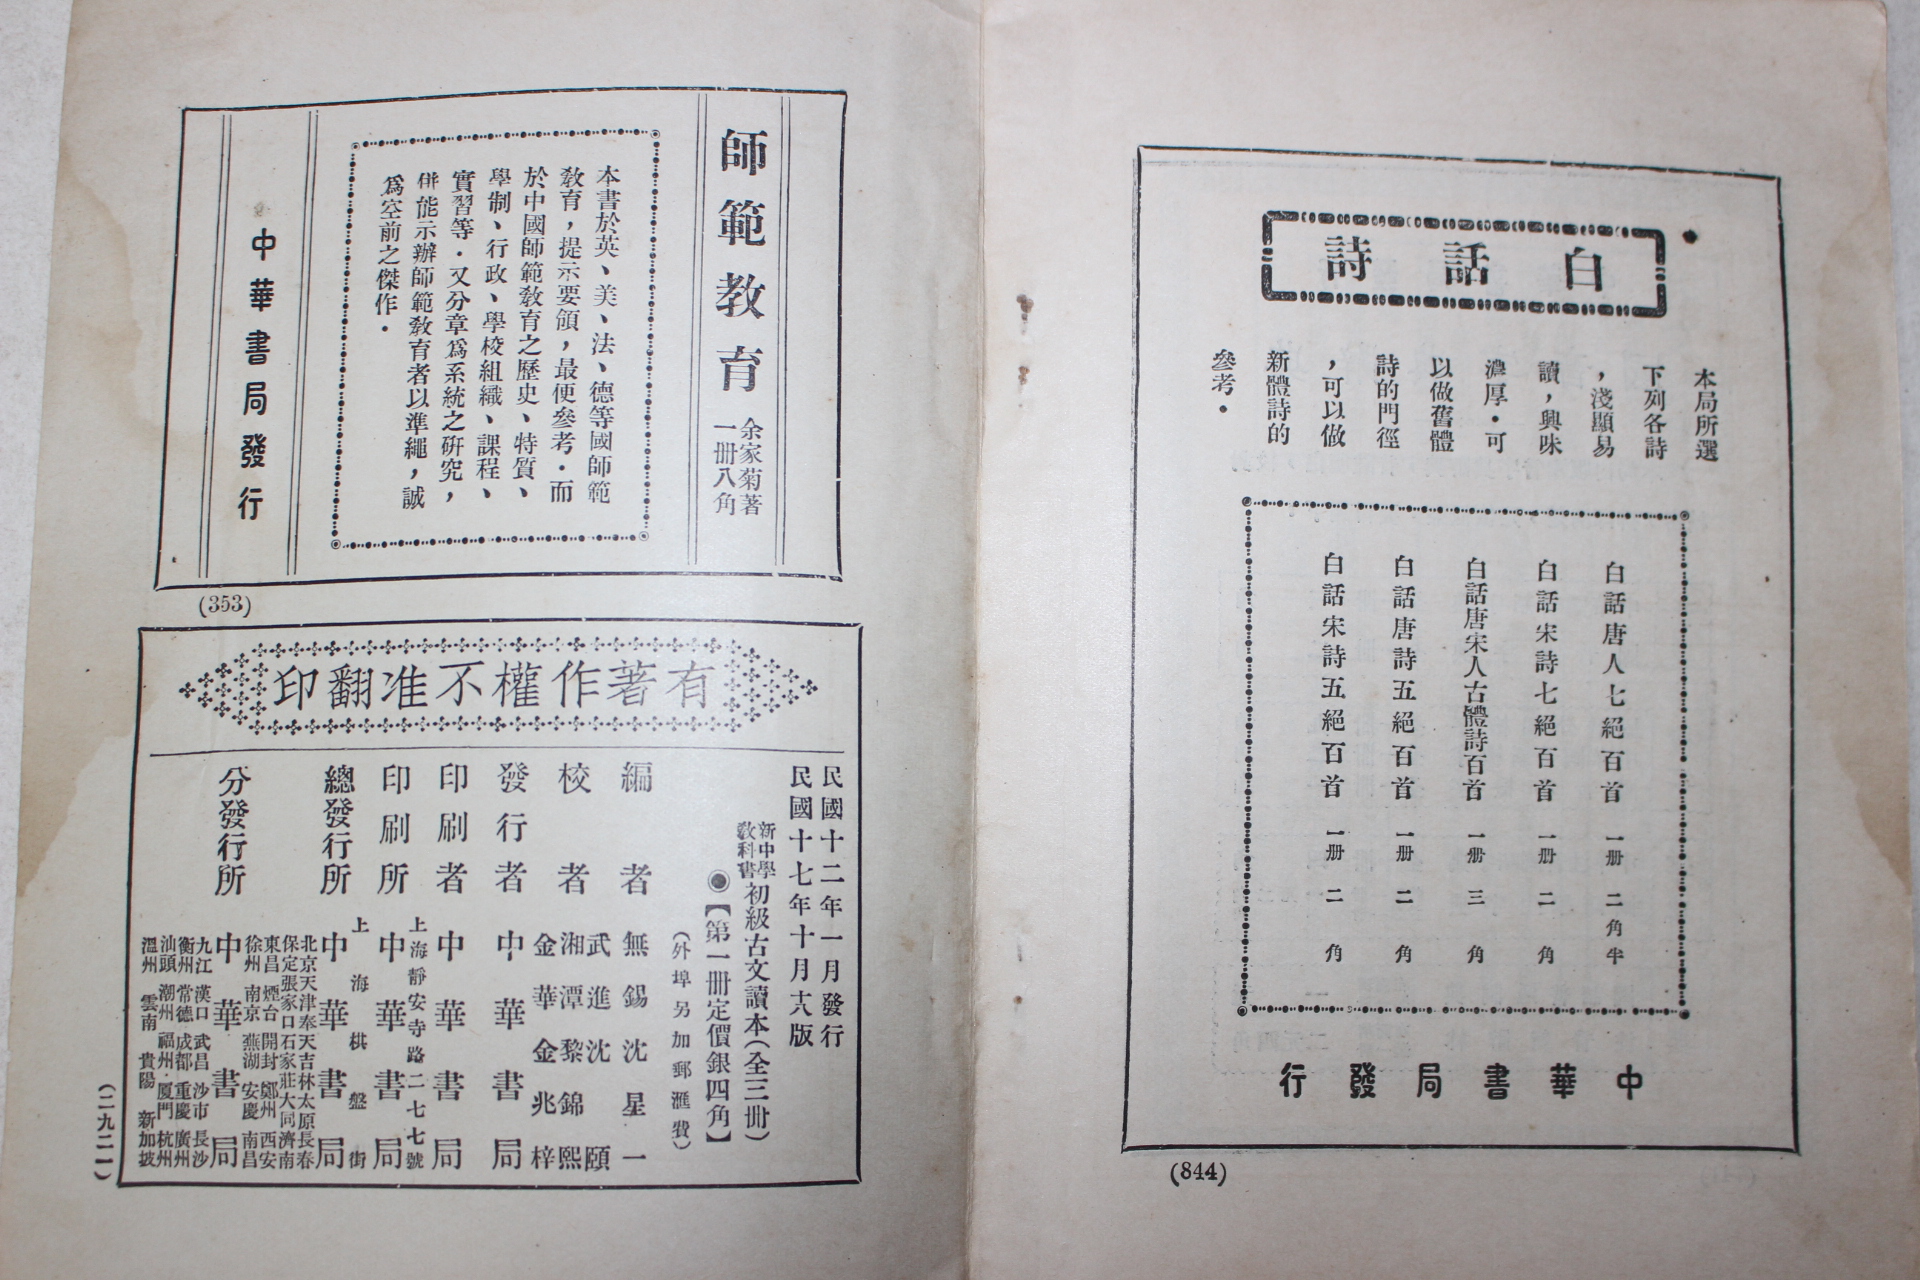 白話詩
本局所選
下列各詩
，淺顯易
讀，興味
濃厚・可
以做舊體
詩的門徑
，可以做
新體詩的
參考・
白話唐人七絕百首 一册 二角半
白話宋詩七絕百首 一册 二角
白話唐宋人古體詩百首 一册 三角
白話唐詩五絕百首 一册 二角
白話宋詩五絕百首 一册 二角
中華書局發行
(844)
師範教育
余家菊著
一册八角
本書於英、美、法、德等國師範
敎育，提示要領，最便參考・而
於中國師範敎育之歷史、特質、
學制、行政、學校組織、課程、
實習等・又分章爲系統之硏究，
倂能示辦師範敎育者以準繩，誠
爲空前之傑作・
中華書局發行
(353)
有著作權不准翻印
民國十二年一月發行
民國十七年十月十八版
新中學
敎科書
初級古文讀本(全三册)
◉【第一册定價銀四角】
(外埠另加郵滙費)
編者 無錫沈星一
校者 武進沈頤
湘潭黎錦熙
金華金兆梓
發行者 中華書局
印刷者 中華書局
上海靜安寺路二七七號
印刷所 中華書局
上海棋盤街
總發行所 中華書局
分發行所 中華書局
北京天津奉天吉林太原長春
保定張家口石家莊大同濟南
東昌 煙台 開封 鄭州 西安
徐州 南京 蕪湖 安慶 南昌
九江 漢口 武昌 沙市 長沙
衡州 常德 成都 重慶 廣州
汕頭 潮州 福州・厦門 杭州
溫州 雲南 貴陽 新加坡
(二九二一)